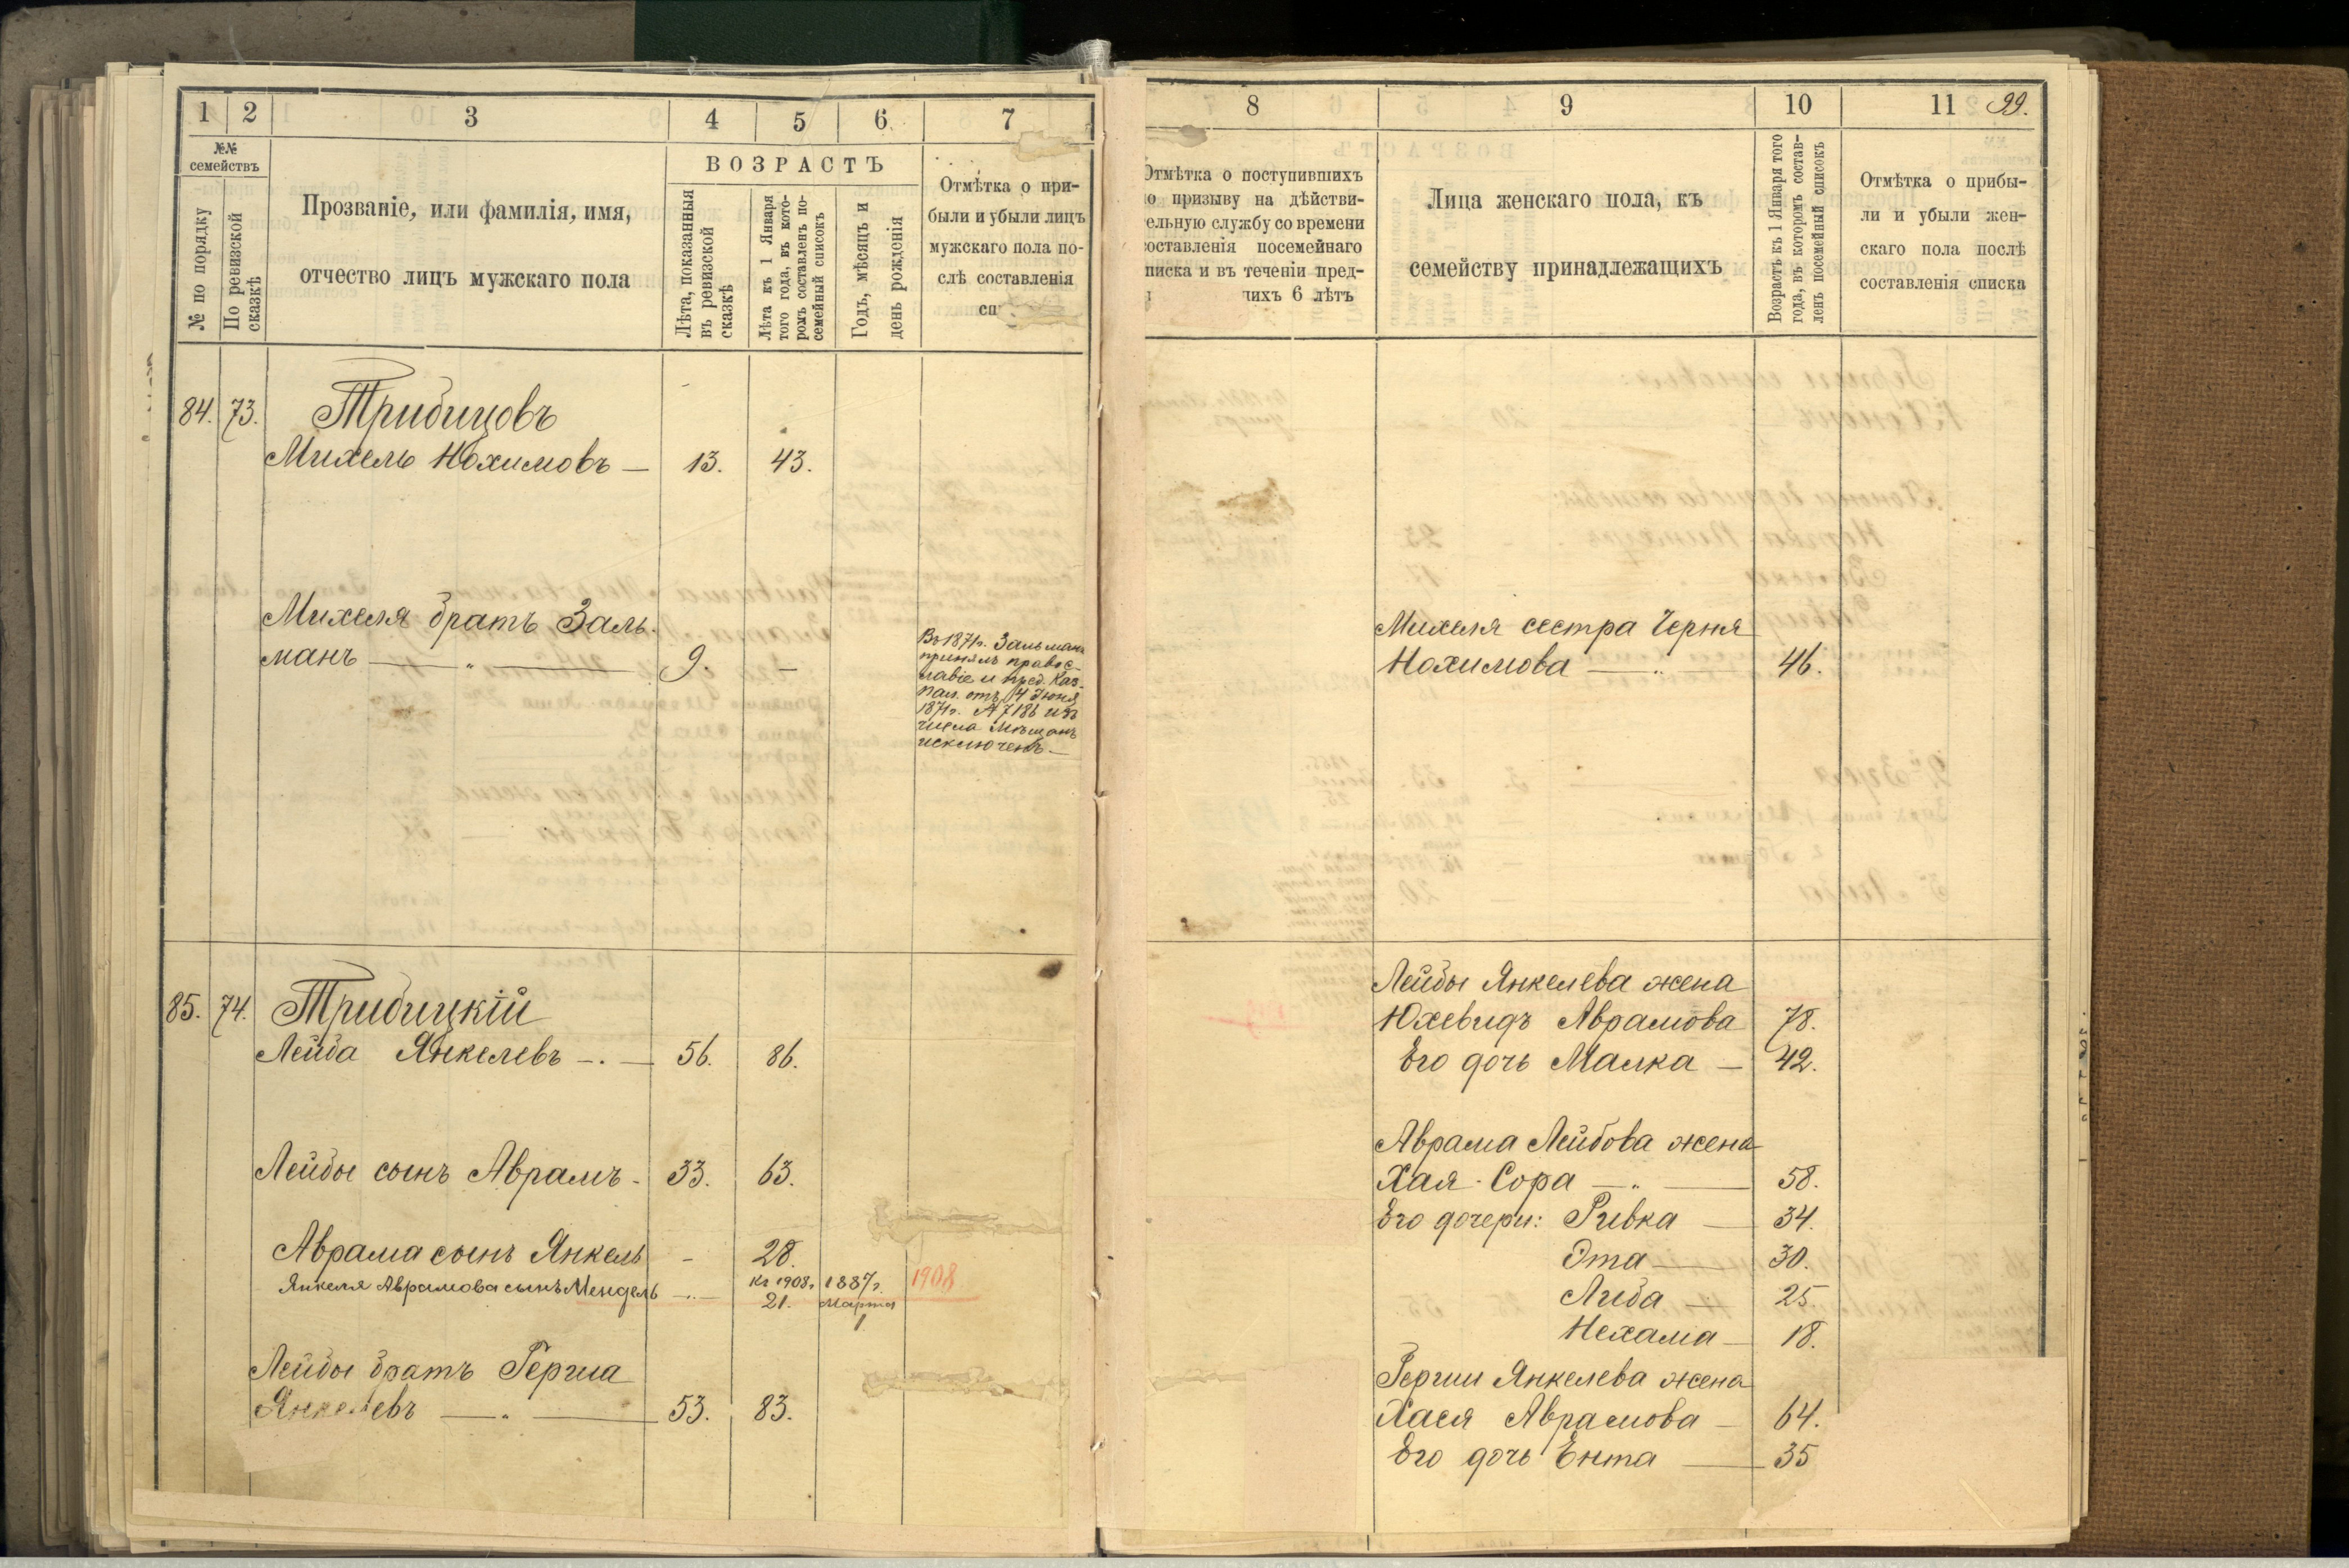 1 2 3 4 5 6 7
№№ семействъ
№ по порядку
По ревизской сказкѣ
Прозваніе, или фамилія, имя,
отчество лицъ мужскаго пола
ВОЗРАСТЪ
Лѣта, показанныя
въ ревизской
сказкѣ
Лѣта къ 1 Января
того года, въ кото-
ромъ составленъ по-
семейный списокъ
Годъ, мѣсяцъ и
день рожденія
Отмѣтка о при-
были и убыли лицъ
мужскаго пола по-
слѣ составленія
сп
84. 73. Трибицовъ
Михель Нохимовъ — 13. 43.
Михеля братъ Заль-
манъ — „ — 9. —
Въ 1871г. Зальманъ
принялъ правос-
лавіе и пред. Каз.
Пал. отъ 14 Іюня
1871г. № 7186 изъ
числа мѣщанъ
исключенъ.—
85. 74. Трибицкій
Лейба Янкелевъ —.— 56. 86.
Лейбы сынъ Аврамъ - 33. 63.
Аврама сынъ Янкель - 28.
Янкеля Аврамова сынъ Мендель —..— къ 1908г. 1887г. 1908
21. Марта
1
Лейбы братъ Герша
Янкелевъ — „ — 53. 83.
8 9 10 11 99.
Отмѣтка о поступившихъ
о призыву на дѣйстви-
ельную службу со времени
оставленія посемейнаго
писка и въ теченіи пред-
ихъ 6 лѣтъ
Лица женскаго пола, къ
семейству принадлежащихъ
Возрастъ къ 1 Января того
года, въ которомъ состав-
ленъ посемейный списокъ
Отмѣтка о прибы-
ли и убыли жен-
скаго пола послѣ
составленія списка
Михеля сестра Черня
Нохимова — „ — 46.
Лейбы Янкелева жена
Юхевидъ Аврамова 78.
Его дочь Малка — 42.
Аврама Лейбова жена
Хая-Сора — „ — 58.
Его дочери: Ривка — 34.
Эта — 30.
Либа — 25.
Нехама — 18.
Герши Янкелева жена
Хася Аврамова — 64.
Его дочь Ента — 35